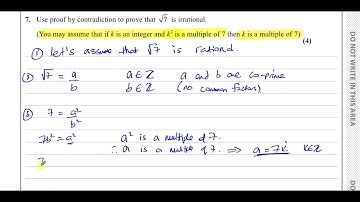 7. Use proof by contradiction to prove that √7 is irrational.
(You may assume that if k is an integer and k² is a multiple of 7 then k is a multiple of 7)
(4)
① Let's assume that √7 is rational.
② √7 = a/b a ∈ Z a and b are co-prime
b ∈ Z (no common factors)
③ 7 = a²/b²
7b² = a² a² is a multiple of 7.
∴ a is a multiple of 7. ⇒ a = 7k k∈Z
7
DO NOT WRITE IN THIS AREA
DO